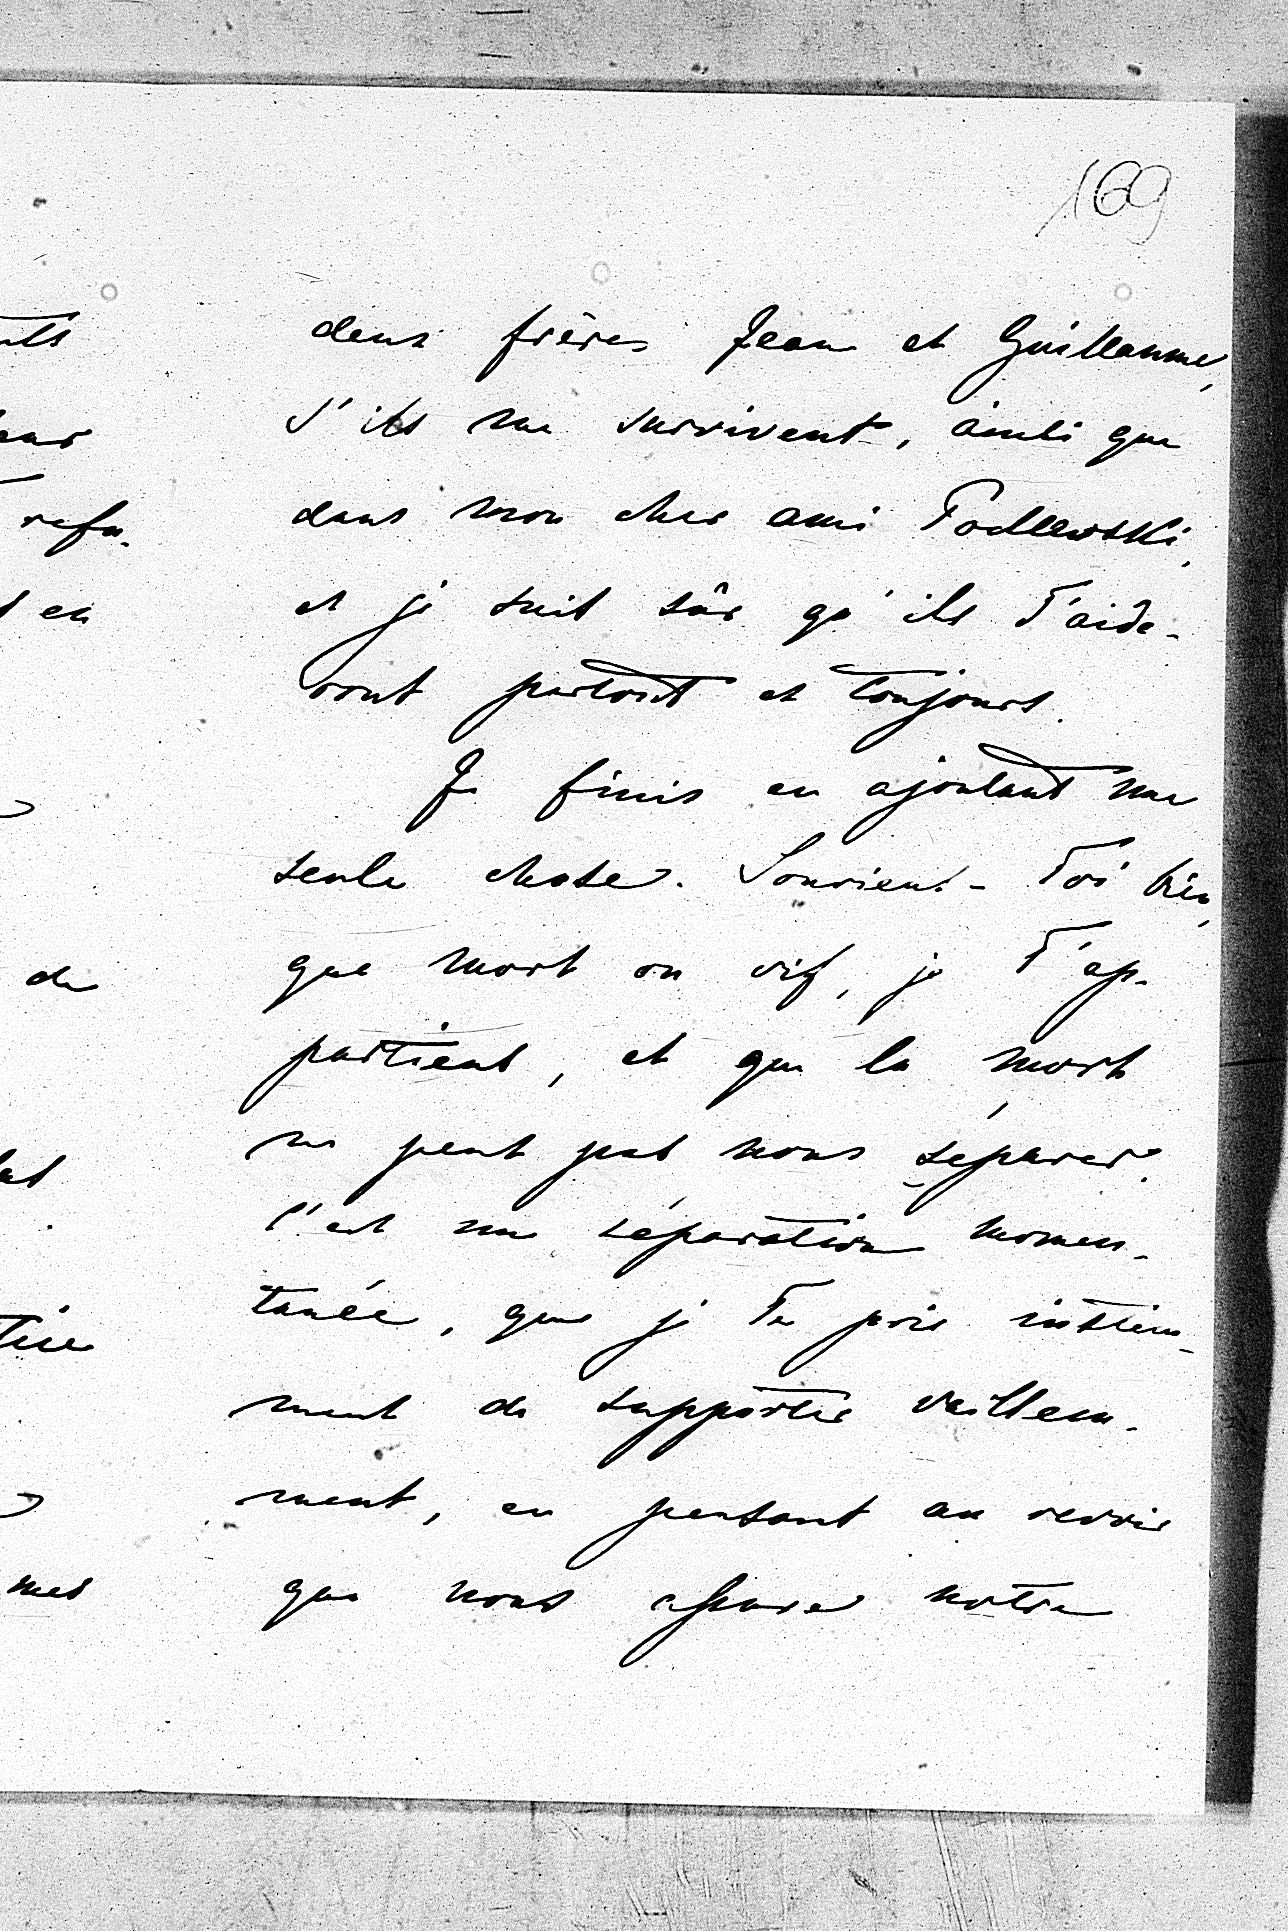 169
deux frères Jean et Guillaume,
s'ils me survivent, ainsi que
dans mon cher ami Podlewski,
et je suis sûr qu'ils T'aide-
ront partout et toujours.
Je finis en ajoutant une
seule chose. Souviens-Toi bien,
que mort ou vif, je T'ap-
partiens, et que la mort
ne peut pas nous séparer.
C'est une séparation momen-
tanée, que je Te prie instem-
ment de supporter vaillem-
ment, en pensant au revoir
que nous assure notre
refu-
en
de
mes